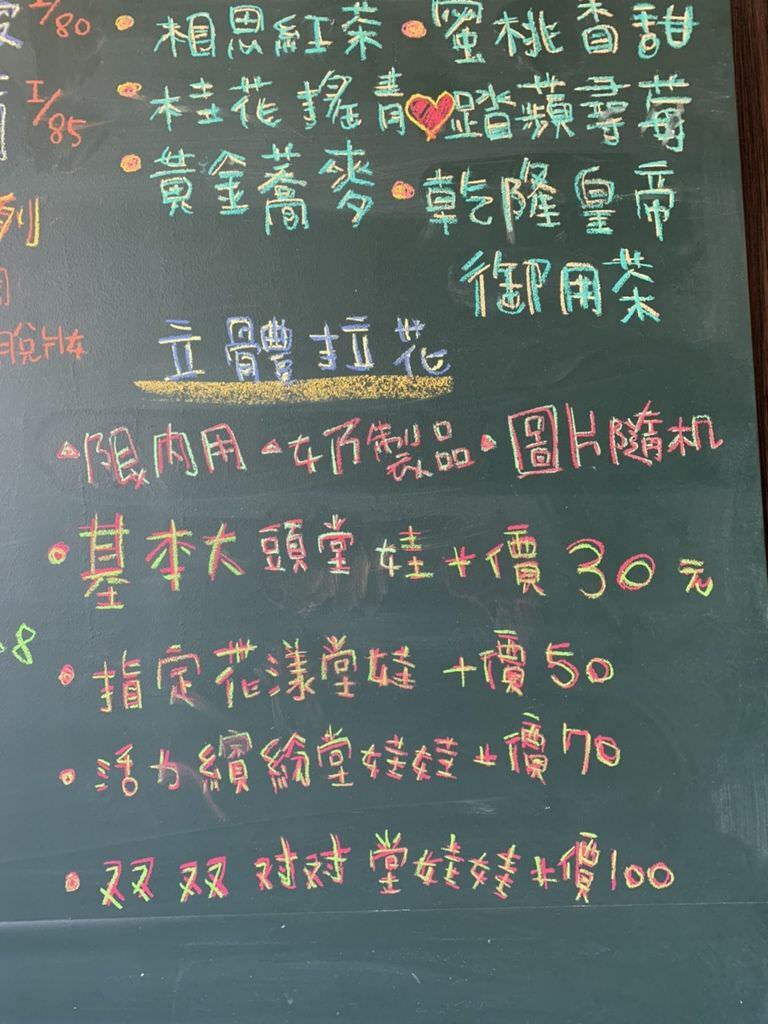 I/80
• 相思紅茶 • 蜜桃香甜
I/85
• 桂花搖青 ♥踏蘋尋莓
• 黃金蕎麥 • 乾隆皇帝
御用茶
列
脫肽
立體拉花
限內用 奶製品 圖片隨机
• 基本大頭堂娃+價30元
8
• 指定花漾堂娃 +價50
• 活力繽紛堂娃娃+價70
• 双双对对堂娃娃+價100